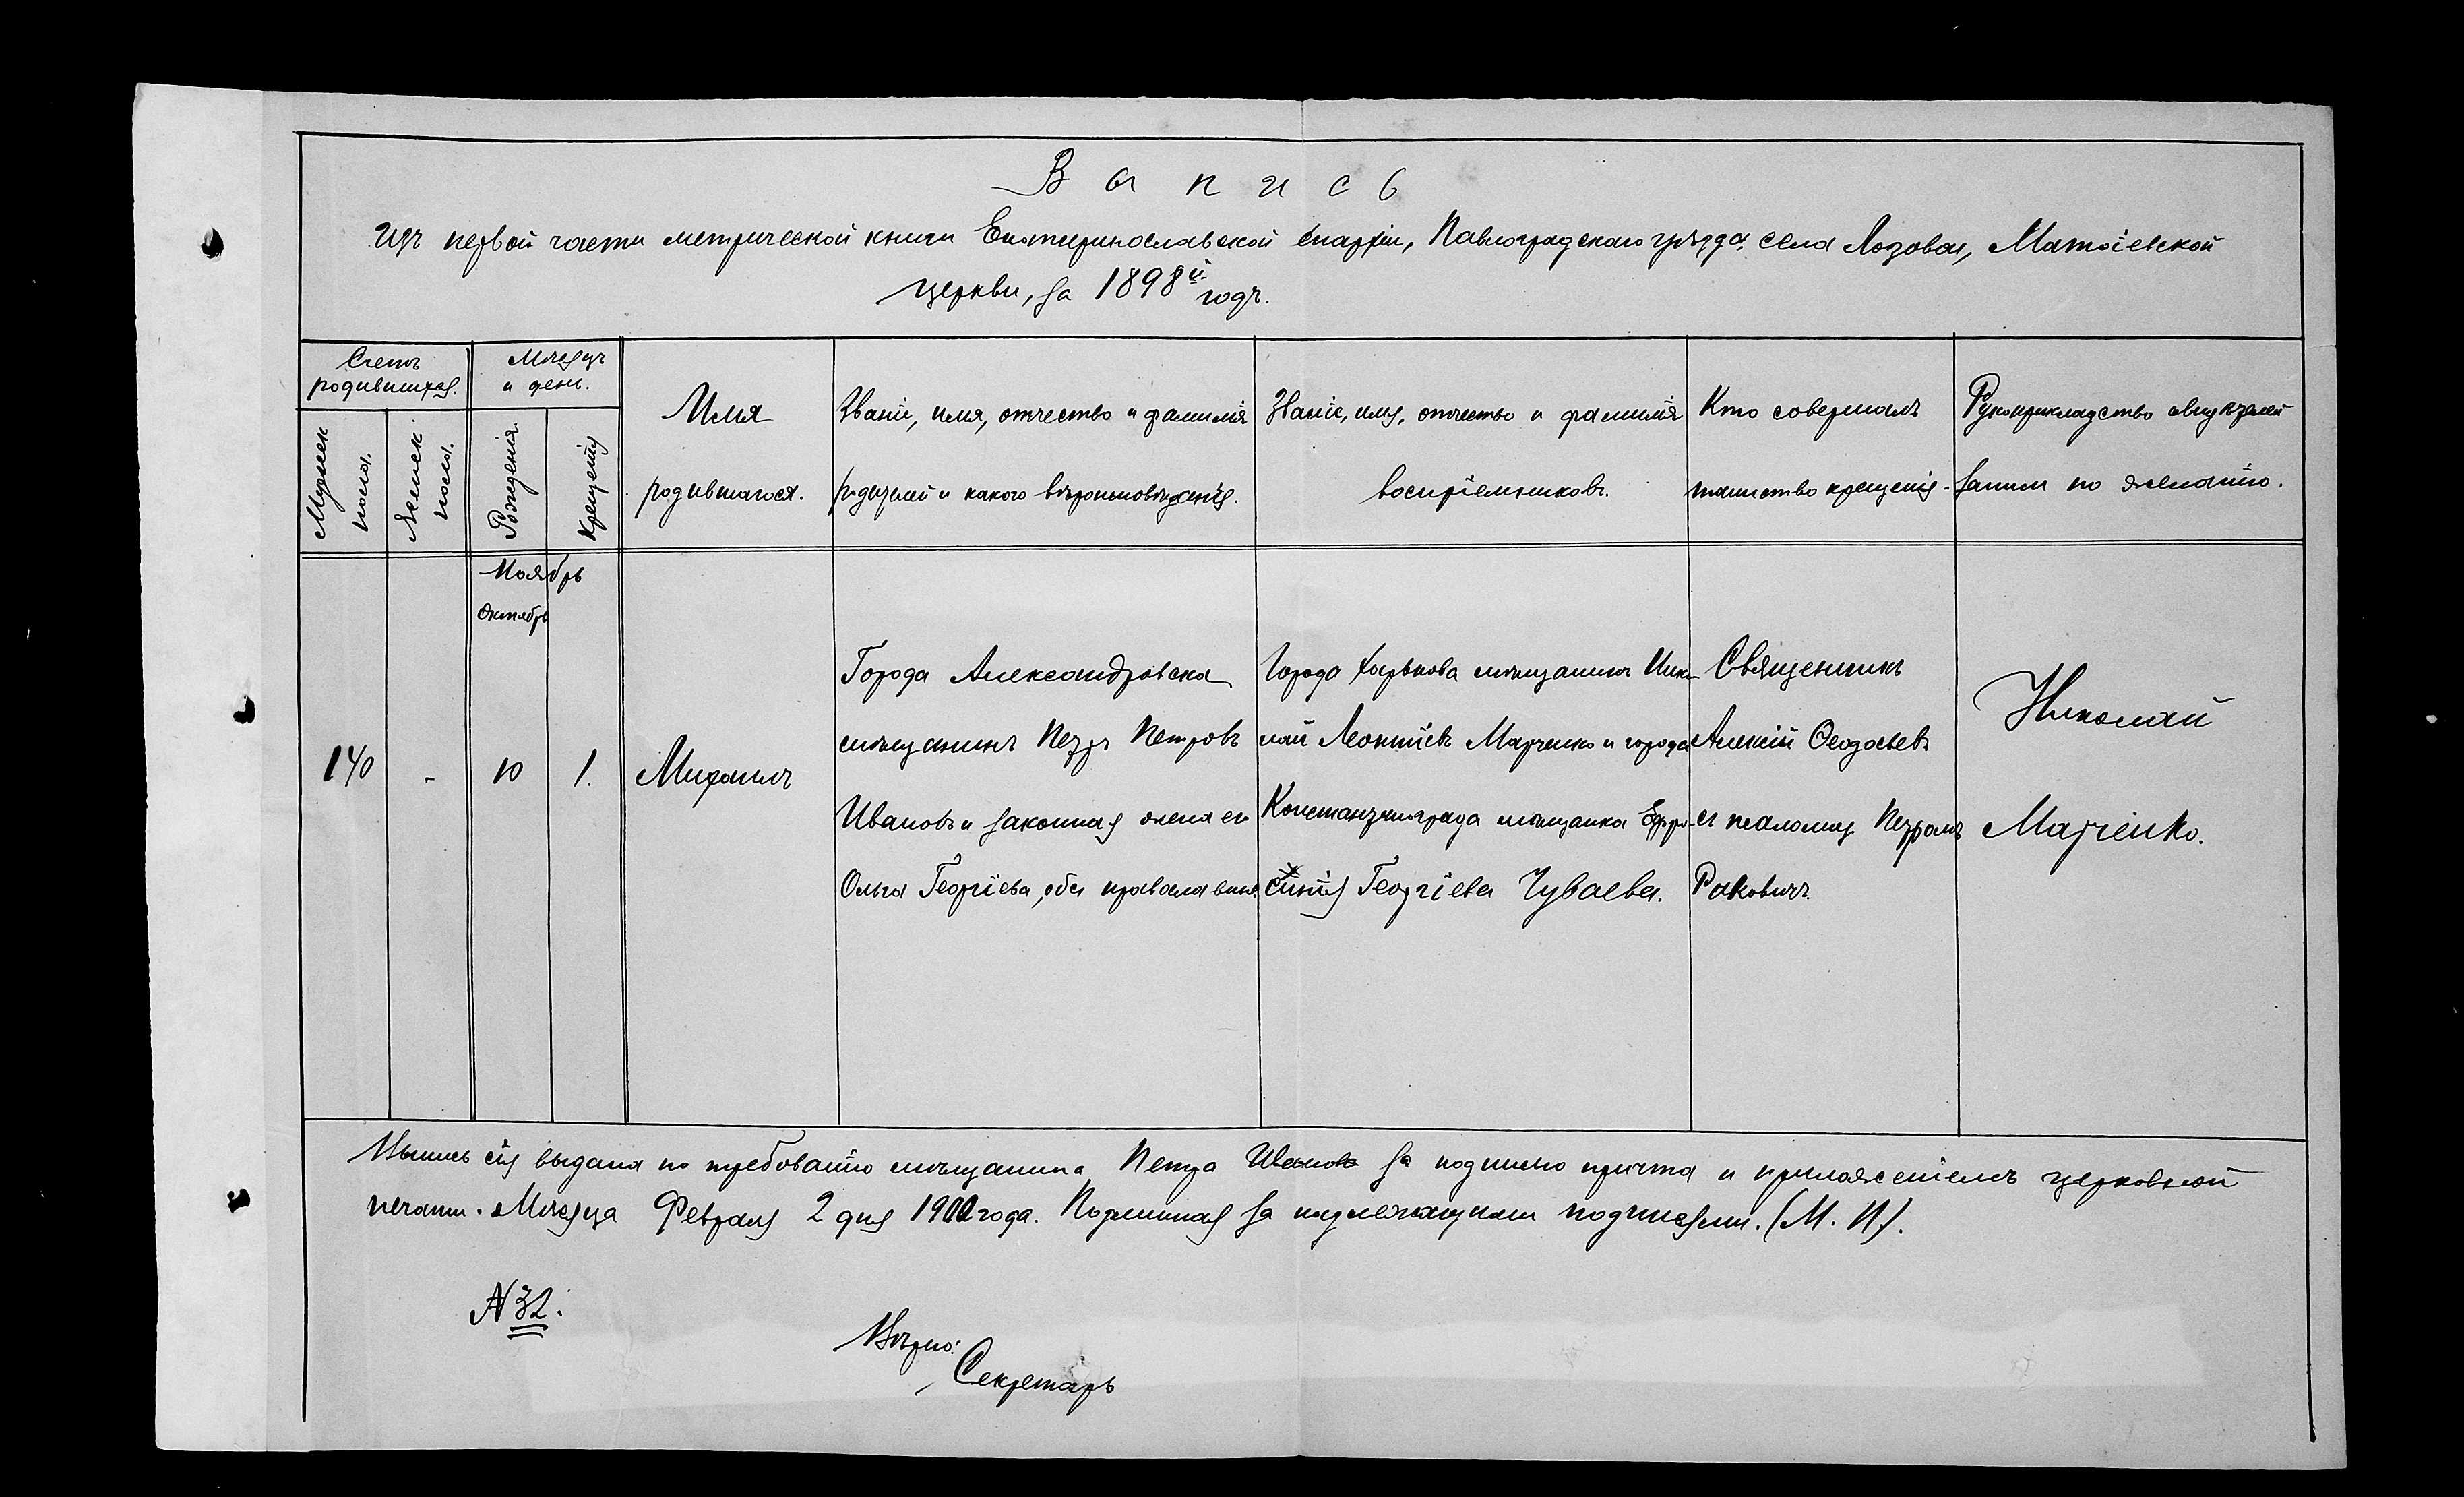 Запись
изъ первой части метрической книги Екатеринославской Епархіи, Павлоградскаго уѣзда села Лозовая, Матѳіевской
церкви, за 1898й годъ.
Счетъ
родившихся.
Мужеск
пола.
Женск
пола.
Мѣсяцъ
и день.
Рожденія.
Крещенія
Имя
родившагося.
Званіе, имя, отчество и фамилія
родителей и какого вѣроисповѣданія.
Званіе, имя, отчество и фамилія
воспріемниковъ.
Кто совершалъ
таинство крещенія.
Рукоприкладство свидѣтелей
записи по желанію.
Ноябрь
Октябрь
140
-
10
1.
Михаилъ
Города Александровска
мѣщанинъ Петръ Петровъ
Ивановъ и законная жена его
Ольга Георгіева, оба православные
Города Харькова мѣщанинъ Нико-
лай Леонтіевъ Марченко и города
Константинограда мѣщанка Евфро-
синія Георгіева Чубаева.
Священникъ
Алексій Ѳеодосьевъ
съ псаломщ Петромъ
Раковичъ.
Николай
Марченко.
Выпись сія выдана по требованію мѣщанина Петра Иванова за подписью причта и приложеніемъ церковной
печати. Мѣсяца Февраля 2 дня 1902 года. Подлинная за надлежащими подписями. (М. П.).
№ 32.
Вѣрно:
Секретарь